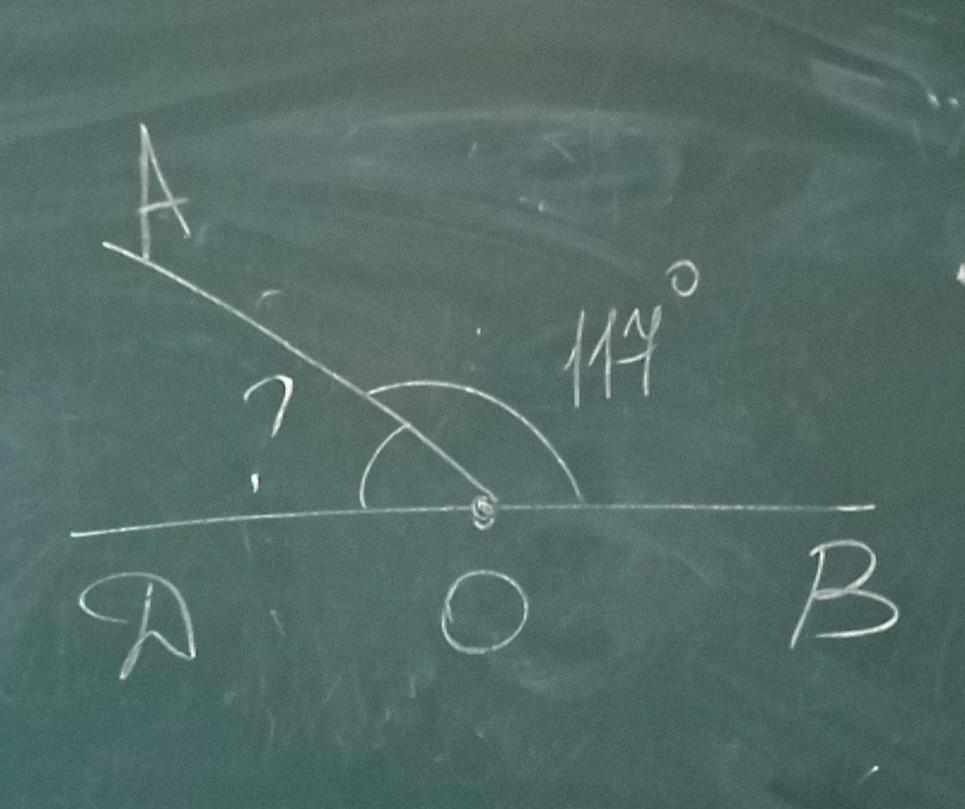 A
117°
?
D O B